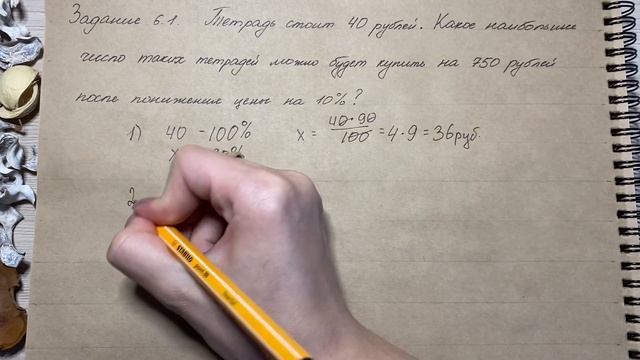 Задание 6.1. Тетрадь стоит 40 рублей. Какое наибольшее
число таких тетрадей можно будет купить на 750 рублей
после понижения цены на 10%?
1) 40 - 100% x = 40·90/100 = 4·9 = 36 руб.
x
2
STABILO